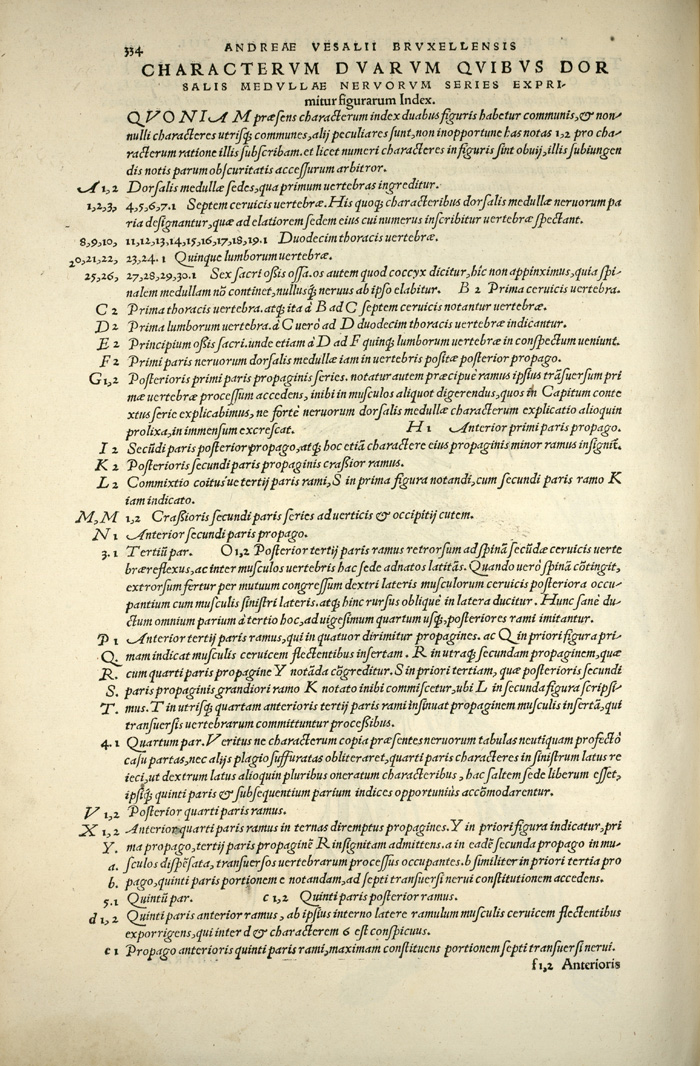 334 ANDREAE VESALII BRVXELLENSIS
CHARACTERVM DVARVM QVIBVS DOR
SALIS MEDVLLAE NERVORVM SERIES EXPRI-
mitur figurarum Index.
QVONIAM præsens characterum index duabus figuris habetur communis, & non-
nulli characteres utrisq; communes, alij peculiares sunt, non inopportune has notas 1,2 pro cha-
racterum ratione illis subscribam. et licet numeri characteres in figuris sint obuij, illis subiungen
dis notis parum obscuritatis accessurum arbitror.
A 1,2 Dorsalis medullæ sedes, qua primum uertebras ingreditur.
1,2,3, 4,5,6,7.1 Septem ceruicis uertebræ. His quoq; characteribus dorsalis medullæ neruorum pa
ria designantur, quæ ad elatiorem sedem eius cui numerus inscribitur uertebræ spectant.
8,9,10, 11,12,13,14,15,16,17,18,19.1 Duodecim thoracis uertebræ.
20,21,22, 23,24.1 Quinque lumborum uertebræ.
25,26, 27,28,29,30.1 Sex sacri oßis ossa. os autem quod coccyx dicitur, hic non appinximus, quia spi-
nalem medullam nō continet, nullusq; neruus ab ipso elabitur. B 2 Prima ceruicis uertebra.
C 2 Prima thoracis uertebra. atq; ita à B ad C septem ceruicis notantur uertebræ.
D 2 Prima lumborum uertebra. à C uerò ad D duodecim thoracis uertebræ indicantur.
E 2 Principium oßis sacri. unde etiam à D ad F quinq; lumborum uertebræ in conspectum ueniunt.
F 2 Primi paris neruorum dorsalis medullæ iam in uertebris positæ posterior propago.
G 1,2 Posterioris primi paris propaginis series. notatur autem præcipuè ramus ipsius trāsuersum pri
mæ uertebræ processum accedens, inibi in musculos aliquot digerendus, quos in Capitum conte
xtus serie explicabimus, ne fortè neruorum dorsalis medullæ characterum explicatio alioquin
prolixa, in immensum excrescat. H 1 Anterior primi paris propago.
I 2 Secūdi paris posterior propago, atq; hoc etiā charactere eius propaginis minor ramus insignit.
K 2 Posterioris secundi paris propaginis craßior ramus.
L 2 Commixtio coitus'ue tertij paris rami, S in prima figura notandi, cum secundi paris ramo K
iam indicato.
M, M 1,2 Craßioris secundi paris series ad uerticis & occipitij cutem.
N 1 Anterior secundi paris propago.
3.1 Tertiū par. O 1,2 Posterior tertij paris ramus retrorsum ad spinā secūdæ ceruicis uerte
bræ reflexus, ac inter musculos uertebris hac sede adnatos latitās. Quando uerò spinā cōtingit,
extrorsum fertur per mutuum congressum dextri lateris musculorum ceruicis posteriora occu-
pantium cum musculis sinistri lateris. atq; hinc rursus obliquè in latera ducitur. Hunc sanè du-
ctum omnium parium à tertio hoc, ad uigesimum quartum usq;, posteriores rami imitantur.
P 1 Anterior tertij paris ramus, qui in quatuor dirimitur propagines. ac Q in priori figura pri-
Q. mam indicat musculis ceruicem flectentibus insertam. R in utraq; secundam propaginem, quæ
R. cum quarti paris propagine Y notāda cōgreditur. S in priori tertiam, quæ posterioris secundi
S. paris propaginis grandiori ramo K notato inibi commiscetur, ubi L in secunda figura scripsi-
T. mus. T in utrisq; quartam anterioris tertij paris rami insinuat propaginem musculis insertā, qui
transuersis uertebrarum committuntur proceßibus.
4.1 Quartum par. Veritus ne characterum copia præsentes neruorum tabulas neutiquam profectò
casu partas, nec alijs plagio suffuratas obliteraret, quarti paris characteres in sinistrum latus re
ieci, ut dextrum latus alioquin pluribus oneratum characteribus, hac saltem sede liberum esset,
ipsiq; quinti paris & subsequentium parium indices opportuniùs accōmodarentur.
V 1,2 Posterior quarti paris ramus.
X 1,2 Anterior quarti paris ramus in ternas diremptus propagines. Y in priori figura indicatur, pri
Y. ma propago, tertij paris propaginē R insignitam admittens. a in eadē secunda propago in mu-
a. sculos dispēsata, transuersos uertebrarum processus occupantes. b similiter in priori tertia pro
b. pago, quinti paris portionem e notandam, ad septi transuersi nerui constitutionem accedens.
5.1 Quintū par. c 1,2 Quinti paris posterior ramus.
d 1,2 Quinti paris anterior ramus, ab ipsius interno latere ramulum musculis ceruicem flectentibus
exporrigens, qui inter d & characterem 6 est conspicuus.
e 1 Propago anterioris quinti paris rami, maximam constituens portionem septi transuersi nerui.
f 1,2 Anterioris